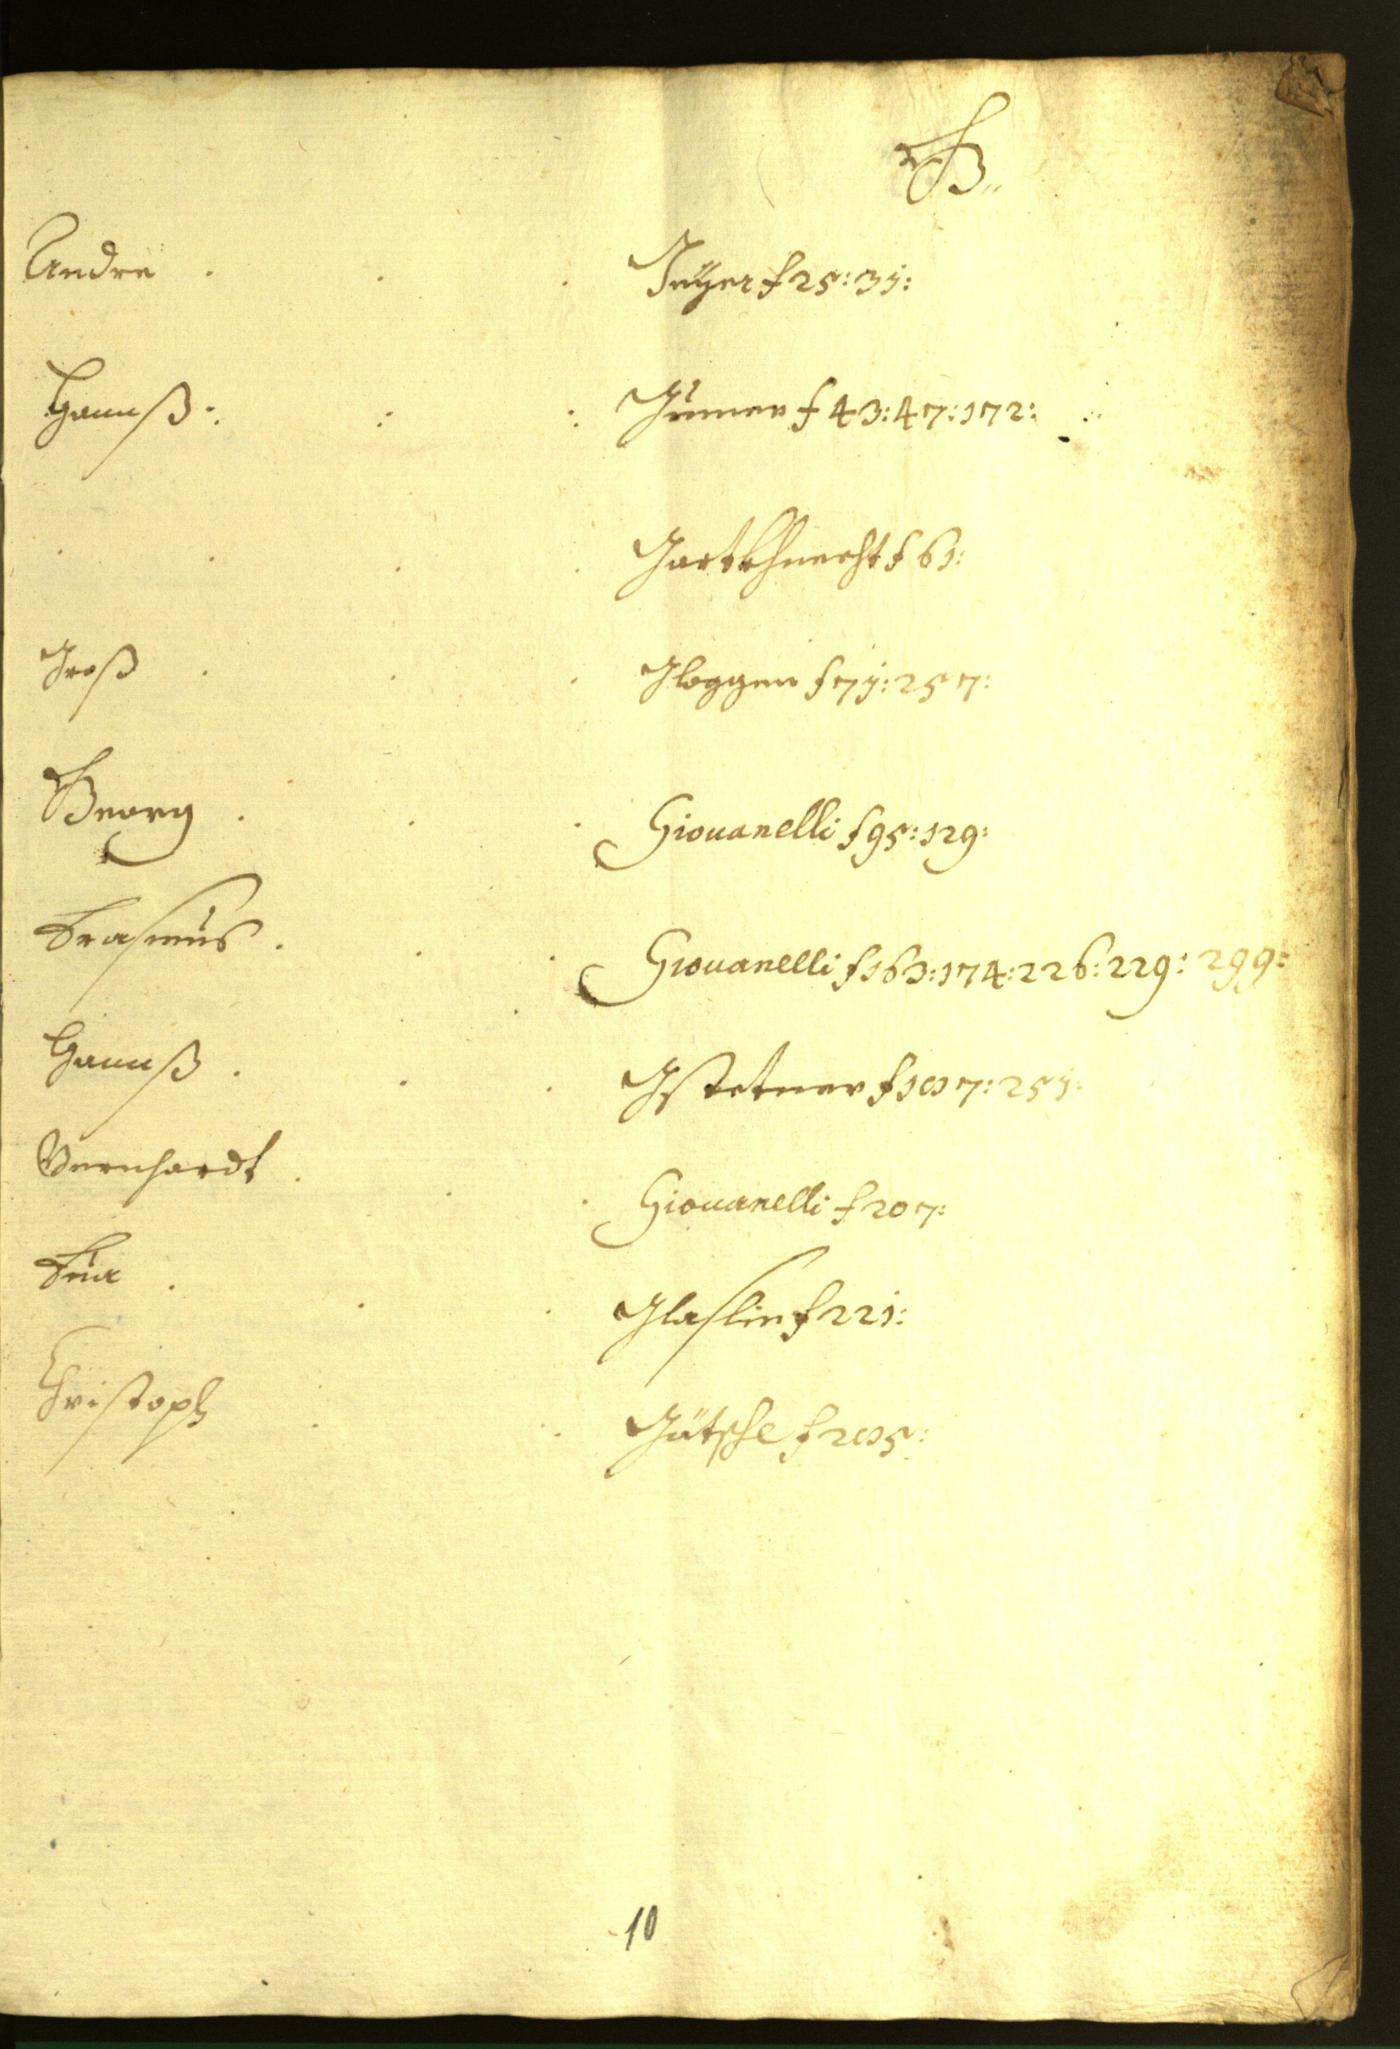 G.
Andre . . . Geÿer f 25: 31:
Hannß . : : Gumer f 43: 47: 172:
. . . . Gartkhnecht f 61:
Groß . . . Gloggen f 71: 257:
Georg . . . Giouanelli f 95: 129:
Erasmus . . . Giouanelli f 163: 174: 226: 229: 299:
Hannß . . . Gstetner f 187: 251:
Bernhardt . . . Giouanelli f 207:
Eua . . . Glaslin f 221:
Christoph . . Gätsche f 285:
10